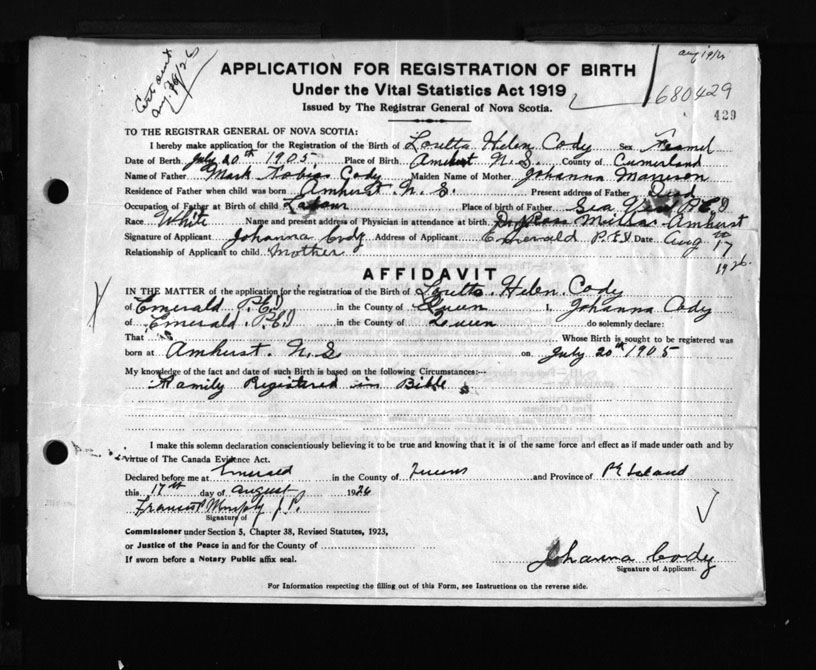 Cert sent
Aug. 19/26
Aug 19/26
680429
429
APPLICATION FOR REGISTRATION OF BIRTH
Under the Vital Statistics Act 1919
Issued by The Registrar General of Nova Scotia.
TO THE REGISTRAR GENERAL OF NOVA SCOTIA:
I hereby make application for the Registration of the Birth of Loretta Helen Cody Sex Feamel
Date of Berth July 20th 1905 Place of Birth Amherst N.S. County of Cumerland
Name of Father Mark Tobias Cody Maiden Name of Mother Johanna Morrison
Residence of Father when child was born Amhurst N.S. Present address of Father Dead
Occupation of Father at Birth of child Labour Place of birth of Father P.E.I
Race White Name and present address of Physician in attendance at birth Dr Ross Millar Amhurst
Signature of Applicant Johanna Cody Address of Applicant Emerald P.E.I Date Aug 17
1926.
Relationship of Applicant to child Mother
AFFIDAVIT
IN THE MATTER of the application for the registration of the Birth of Loretta Helen Cody
of Emerald P.E.I in the County of Queen I, Johanna Cody
of Emerald P.E.I in the County of Queen do solemnly declare:
That Whose Birth is sought to be registered was
born at Amhurst. N.S. on July 20th 1905
My knowledge of the fact and date of such Birth is based on the following Circumstances:--
Family Registered in Bible
I make this solemn declaration conscientiously believing it to be true and knowing that it is of the same force and effect as if made under oath and by
virtue of The Canada Evidence Act.
Declared before me at Emerald in the County of Queens and Province of P E Island
this 17th day of August 1926
Francis P Murphy J.P.
Signature of
Commissioner under Section 5, Chapter 38, Revised Statutes, 1923,
or Justice of the Peace in and for the County of
If sworn before a Notary Public affix seal.
Johanna Cody
Signature of Applicant.
For Information respecting the filling out of this Form, see Instructions on the reverse side.